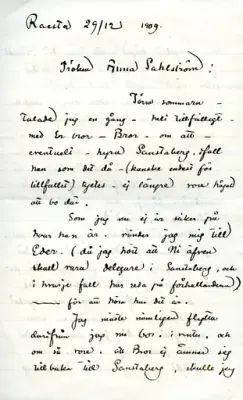 Racksta 29/12 1909.
Fröken Anna Sahlström:
Förra sommaren
talade jag en gång – helt tillfälligt
med Er bror – Bror – om att
eventuelt – hyra Sandtaberg. ifall
han som det då – (kanske endast för
tillfället) tycktes – ej längre vore hågad
att bo där.
Som jag nu ej är säker på
hvar han är. vänder jag mig till
Eder. (då jag hört att Ni äfven
skall vara delegare i Sandtaberg, och
i hvarje fall har reda på förhållanden))
– för att höra hur det är.
Jag måste nämligen flytta
därifrån jag nu bor. i
och
om så vore. att Bror ej ämnar sig
tillbaka till Sandtaberg, skulle jag